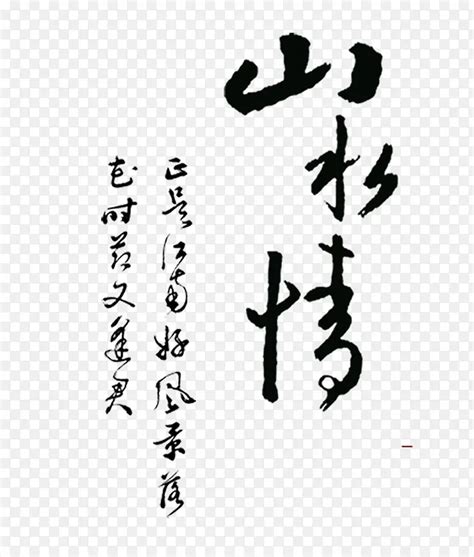 山水情
正是江南好風景落
花时节又逢君